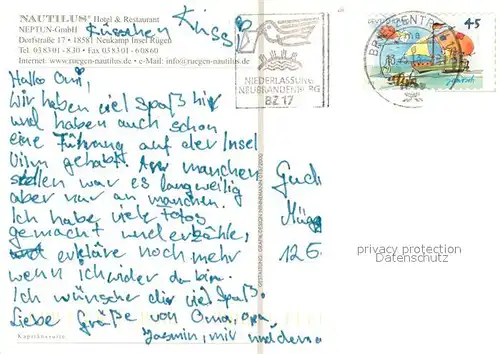 NAUTILUS® Hotel & Restaurant
NEPTUN-GmbH
Dorfstraße 17 • 18581 Neukamp Insel Rügen
Tel 038301-830 • Fax 038301-60860
Internet: www.ruegen-nautilus.de • e-Mail: info@ruegen-nautilus.de
Küsschen Küss
Hallo Omi,
Wir haben viel Spaß hir
und haben auch schon
eine Führung auf der Insel
Vilm gehabt. An manchen
stellen war es langweilig
aber nur an manchen.
Ich habe viele Fotos
gemacht und erzähle,
und erkläre noch mehr
wenn ich wider da bin.
Ich wünsche dir viel Spaß.
Liebe Grüße von Oma, Opa,
Jasmin, mir und
Kapitänssuite
NIEDERLASSUNG
NEUBRANDENBURG
BZ 17
BRIEFZENTRUM
45
privacy protection
Datenschutz